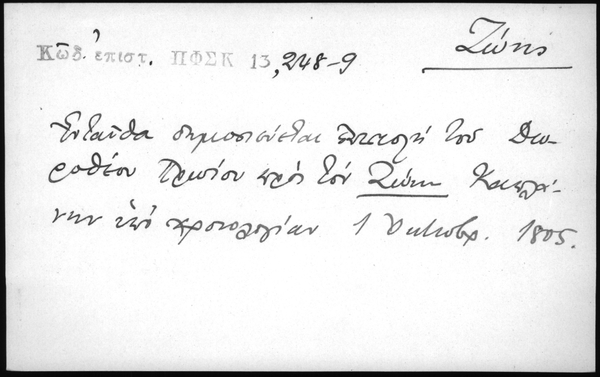 Ζώης
Κῶδ. ἐπιστ. ΠΦΣΚ 13, 248-9
Ἐνταῦθα δημοσιεύεται ἐπιστολή τοῦ Δω-
ροθέου Πρωίου πρός τόν Ζώην Καπλά-
νην ὑπό χρονολογίαν 1 Ὀκτωβρ. 1805.